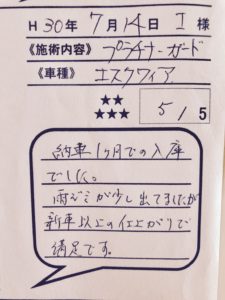 H30年7月14日 I 様
《施術内容》プラチナーガード
《車種》エスクワイア
★★
★★★
5/5
納車1ヶ月での入庫
でした。
雨ジミが少し出てましたが
新車以上の仕上がりで
満足です。